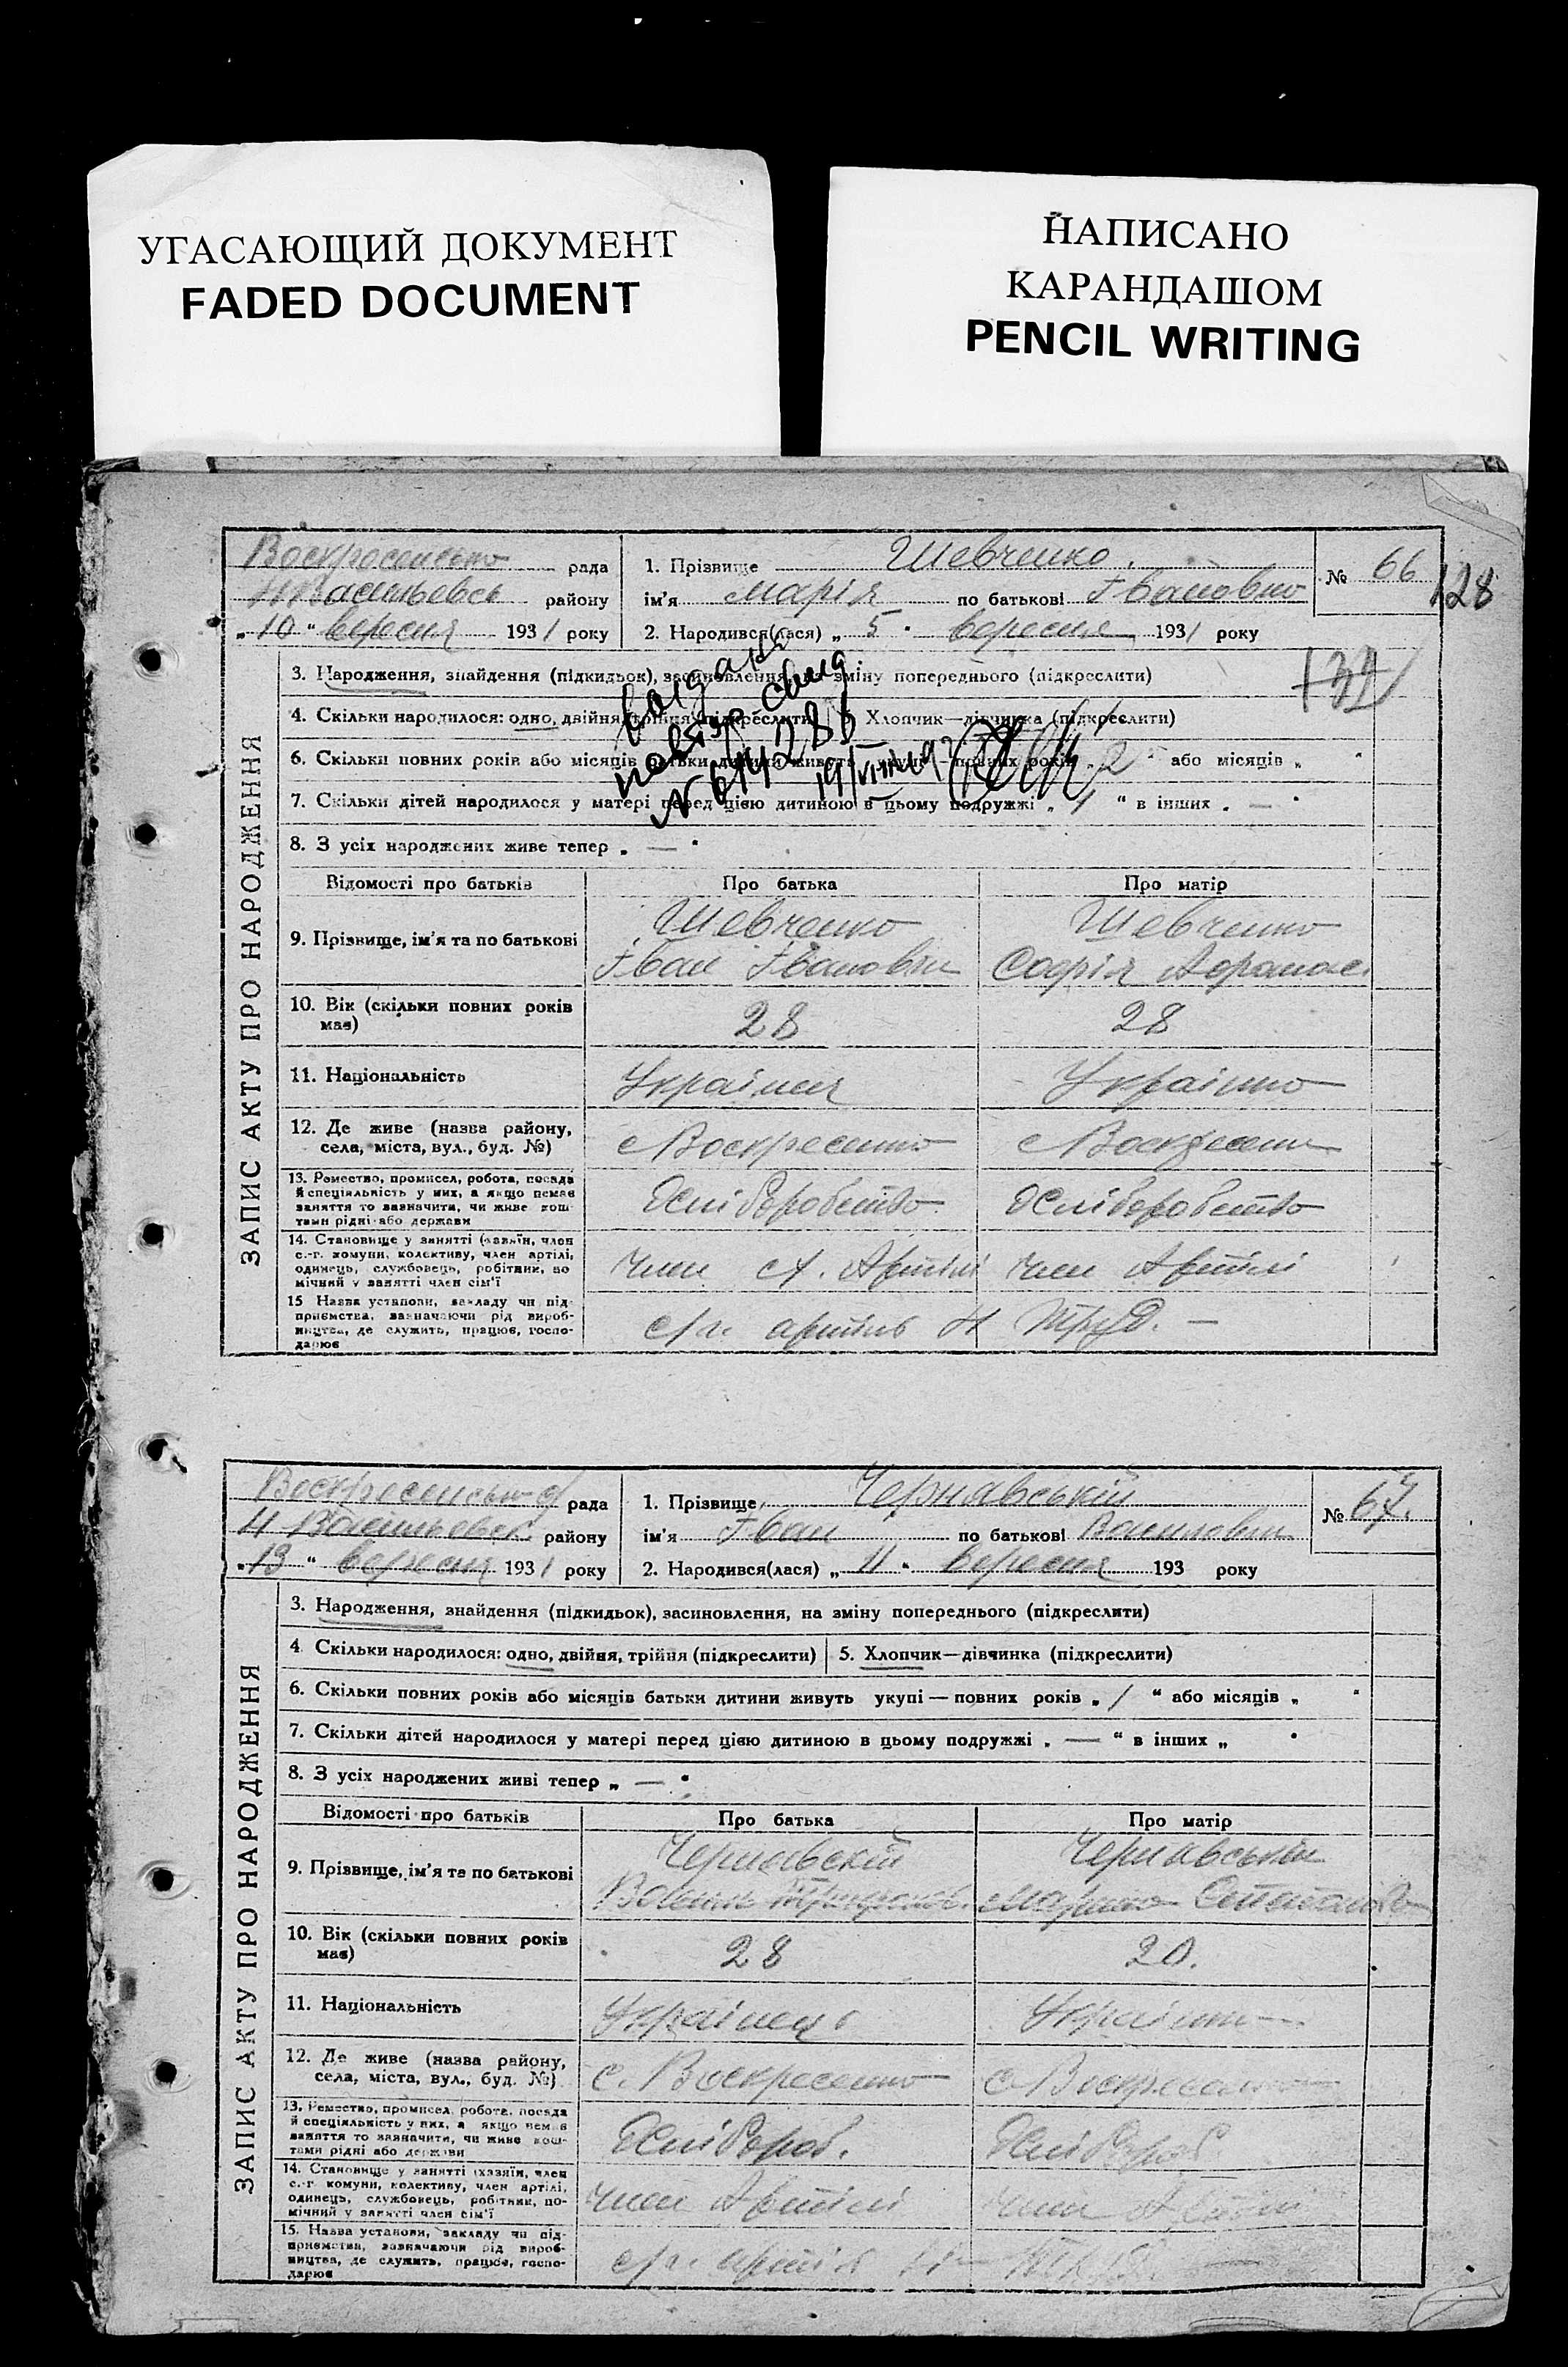 УГАСАЮЩИЙ ДОКУМЕНТ
FADED DOCUMENT
НАПИСАНО
КАРАНДАШОМ
PENCIL WRITING
128
132
ЗАПИС АКТУ ПРО НАРОДЖЕННЯ
Воскросенсько рада
Н Васильевсь району
„ 10 “ вересня 1931 року
1. Прізвище Шевченко
ім'я Марія по батькові Івановно
№ 66
2. Народився(лася) „ 5 “ вересня 1931 року
3. Народження, знайдення (підкидьок), засиновлення, на зміну попереднього (підкреслити)
4. Скільки народилося: одно, двійня, трійня (підкреслити) Хлопчик—дівчинка (підкреслити)
6. Скільки повних років або місяців батьки дитини живуть укупі — повних років „ 2 “ або місяців „ “
7. Скільки дітей народилося у матері перед цією дитиною в цьому подружжі „ 1 “ в інших „ — “
8. З усіх народжених живе тепер „ — “
видано
повтор. свид
19/VIII
Відомості про батьків Про батька Про матір
9. Прізвище, ім'я та по батькові
Шевченко Шевченко
Іван Іванович Софія Афанас.
10. Вік (скільки повних років має) 28 28
11. Національність Українец Українко
12. Де живе (назва району, села, міста, вул., буд. №) с Воскресенно с Воскресенн
13. Ремество, промисел, робота, посада й спеціяльність у них, а якщо немає заняття то зазначити, чи живе коштами рідні або держави Хліборобство Хліборобство
14. Становище у занятті (хазяїн, член с.-г. комуни, колективу, член артілі, одинець, службовець, робітник, помічний у занятті член сім'ї Член с. Артілі Член Артілі
15 Назва установи, закладу чи підприємства, зазначаючи рід виробництва, де служить, працює, господарює с/г. артиль Н Труд. —
ЗАПИС АКТУ ПРО НАРОДЖЕННЯ
Воскресенсько с/ рада
Н Васильевск. району
„ 13 “ вересня 1931 року
1. Прізвище Чернявський
ім'я Іван по батькові Васильович
№ 67.
2. Народився(лася) „ 11 “ вересня 193 року
3. Народження, знайдення (підкидьок), засиновлення, на зміну попереднього (підкреслити)
4 Скільки народилося: одно, двійня, трійня (підкреслити) 5. Хлопчик—дівчинка (підкреслити)
6. Скільки повних років або місяців батьки дитини живуть укупі — повних років „ 1 “ або місяців „ “
7. Скільки дітей народилося у матері перед цією дитиною в цьому подружжі „ — “ в інших „ “
8. З усіх народжених живі тепер „ — “
Відомості про батьків Про батька Про матір
9. Прізвище, ім'я та по батькові
Чернявский Чернявськи
Василь Марина Степановн
10. Вік (скільки повних років має) 28 20.
11. Національність Українець Українко
12. Де живе (назва району, села, міста, вул., буд. №) с. Воскресенно с. Воскресенно
13. Ремество, промисел, робота, посада й спеціяльність у них, а якщо немає заняття то зазначити, чи живе коштами рідні або держави Хлібороб. Хлібороб
14. Становище у занятті (хазяїн, член с.-г. комуни, колективу, член артілі, одинець, службовець, робітник, помічний у занятті член сім'ї Член Артілі Член Артілі
15. Назва установи, закладу чи підприємства, зазначаючи рід виробництва, де служить, працює, господарює с/г. артіль Н Труд. —